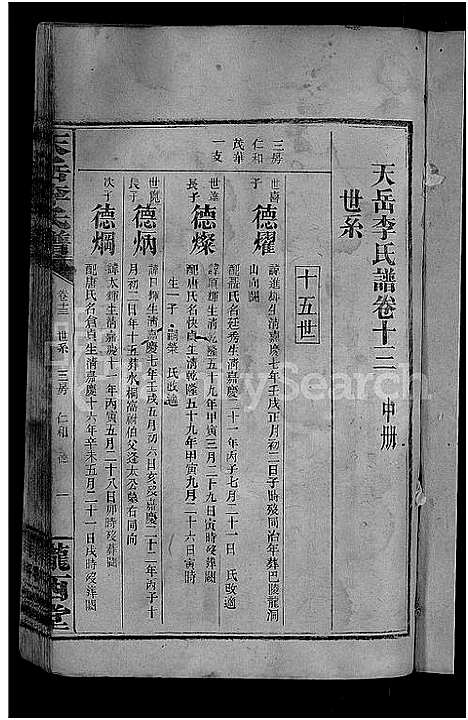 天岳李氏譜卷十三 中冊
世系
十五世
三房
仁和
茂華
一支
世喜
子
德耀
諱進 生清嘉慶七年壬戌正月初二日子時歿同治年葬巴陵龍洞
山向闕
配 氏名廷秀生清嘉慶二十一年丙子七月二十一日 氏改適
世逵
長子
德燦
諱 輝生清乾隆五十九年甲寅三月二十九日寅時歿葬闕
配唐氏名快貞生清乾隆五十九年甲寅九月二十六日寅時
生一子 嗣榮 氏改適
世寬
長子
德炳
諱日輝生清嘉慶七年壬戌五月初六日亥歿嘉慶二十二年丙子十
月初二日年十五葬水桐窩祔伯父逵太公墓右同向
次子
德爓
諱太輝生清嘉慶十一年丙寅五月二十八日卯時歿葬闕
配唐氏名倉貞生清嘉慶十六年辛未五月二十一日戌時歿葬闕
天岳李氏譜
卷十三 世系 三房 仁和 一
隴西堂
MySearch